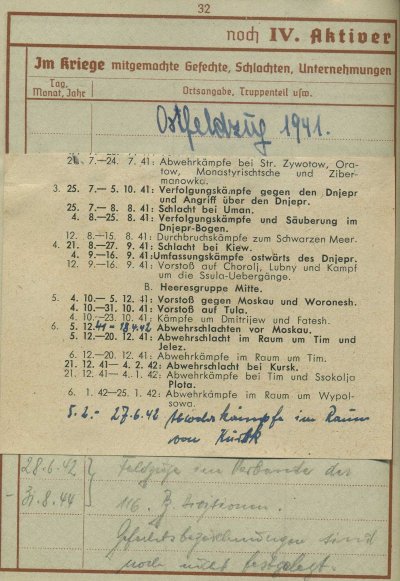 32
noch IV. Aktiver
Im Kriege mitgemachte Gefechte, Schlachten, Unternehmungen
Tag, Monat, Jahr
Ortsangabe, Truppenteil usw.
Ostfeldzug 1941.
7.—24. 7. 41: Abwehrkämpfe bei Str. Zywotow, Ora-
tow, Monastyrischtsche und Ziber-
manowka.
3. 25. 7.— 5. 10. 41: Verfolgungskämpfe gegen den Dnjepr
und Angriff über den Dnjepr.
25. 7.— 8. 8. 41: Schlacht bei Uman.
4. 8.—25. 8. 41: Verfolgungskämpfe und Säuberung im
Dnjepr-Bogen.
12. 8.—15. 8. 41: Durchbruchskämpfe zum Schwarzen Meer.
4. 21. 8.—27. 9. 41: Schlacht bei Kiew.
4. 9.—16. 9. 41: Umfassungskämpfe ostwärts des Dnjepr.
12. 9.—16. 9. 41: Vorstoß auf Chorolj, Lubny und Kampf
um die Ssula-Uebergänge.
B. Heeresgruppe Mitte.
5. 4. 10.— 5. 12. 41: Vorstoß gegen Moskau und Woronesh.
4. 10.—31. 10. 41: Vorstoß auf Tula.
4. 10.—23. 10. 41: Kämpfe um Dmitrijew und Fatesh.
6. 5. 12. 41 - 18.4.42 Abwehrschlachten vor Moskau.
5. 12.—20. 12. 41: Abwehrschlacht im Raum um Tim und
Jelez.
6. 12.—20. 12. 41: Abwehrkämpfe im Raum um Tim.
21. 12. 41— 4. 2. 42: Abwehrschlacht bei Kursk.
21. 12. 41— 4. 1. 42: Abwehrkämpfe bei Tim und Ssokolja
Plota.
6. 1. 42—25. 1. 42: Abwehrkämpfe im Raum um Wypol-
sowa.
5.2.- 27.6.42 Abwehrkämpfe im Raum
von Kursk
28.6.42 Feldzüge im Verbande der
- 31.8.44 116. Pz Divisionen.
Gefechtsbezeichnungen sind
noch nicht festgelegt.